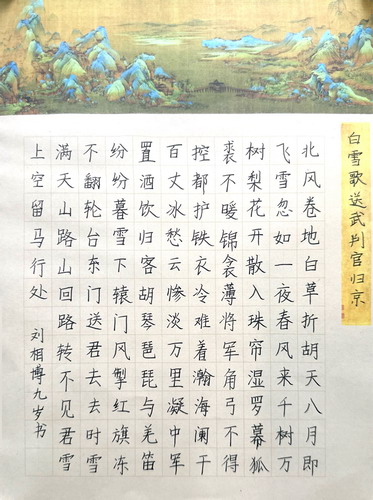 白雪歌送武判官归京
北风卷地白草折胡天八月即
飞雪忽如一夜春风来千树万
树梨花开散入珠帘湿罗幕狐
裘不暖锦衾薄将军角弓不得
控都护铁衣冷难着瀚海阑干
百丈冰愁云惨淡万里凝中军
置酒饮归客胡琴琵琶与羌笛
纷纷暮雪下辕门风掣红旗冻
不翻轮台东门送君去去时雪
满天山路山回路转不见君雪
上空留马行处
刘相博九岁书